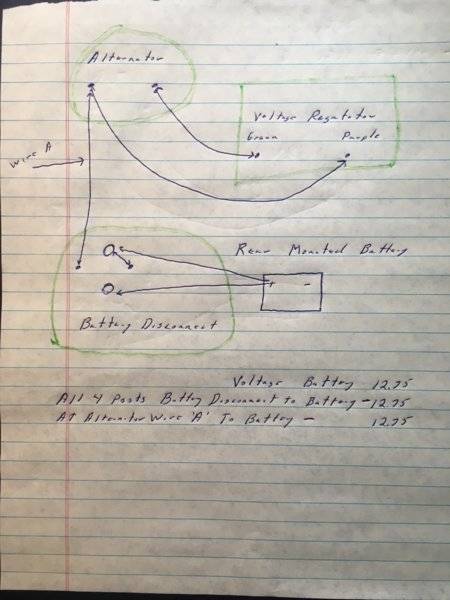 Alternator
Voltage Regulator
Green Purple
Wire A
Rear Mounted Battery
+ -
Battery Disconnect
Voltage Battery 12.75
All 4 Posts Battery Disconnect to Battery - 12.75
At Alternator Wire 'A' To Battery - 12.75